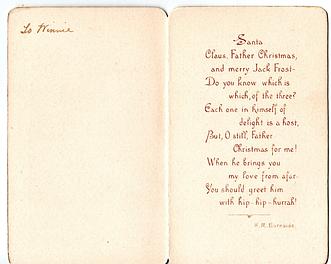 To Winnie
-Santa
Claus, Father Christmas,
and merry Jack Frost-
Do you know which is
which, of the three?
Each one in himself of
delight is a host,
But, O still, Father
Christmas for me!
When he brings you
my love from afar-
You should greet him
with hip-hip-hurrah!
H. M. Burnside.